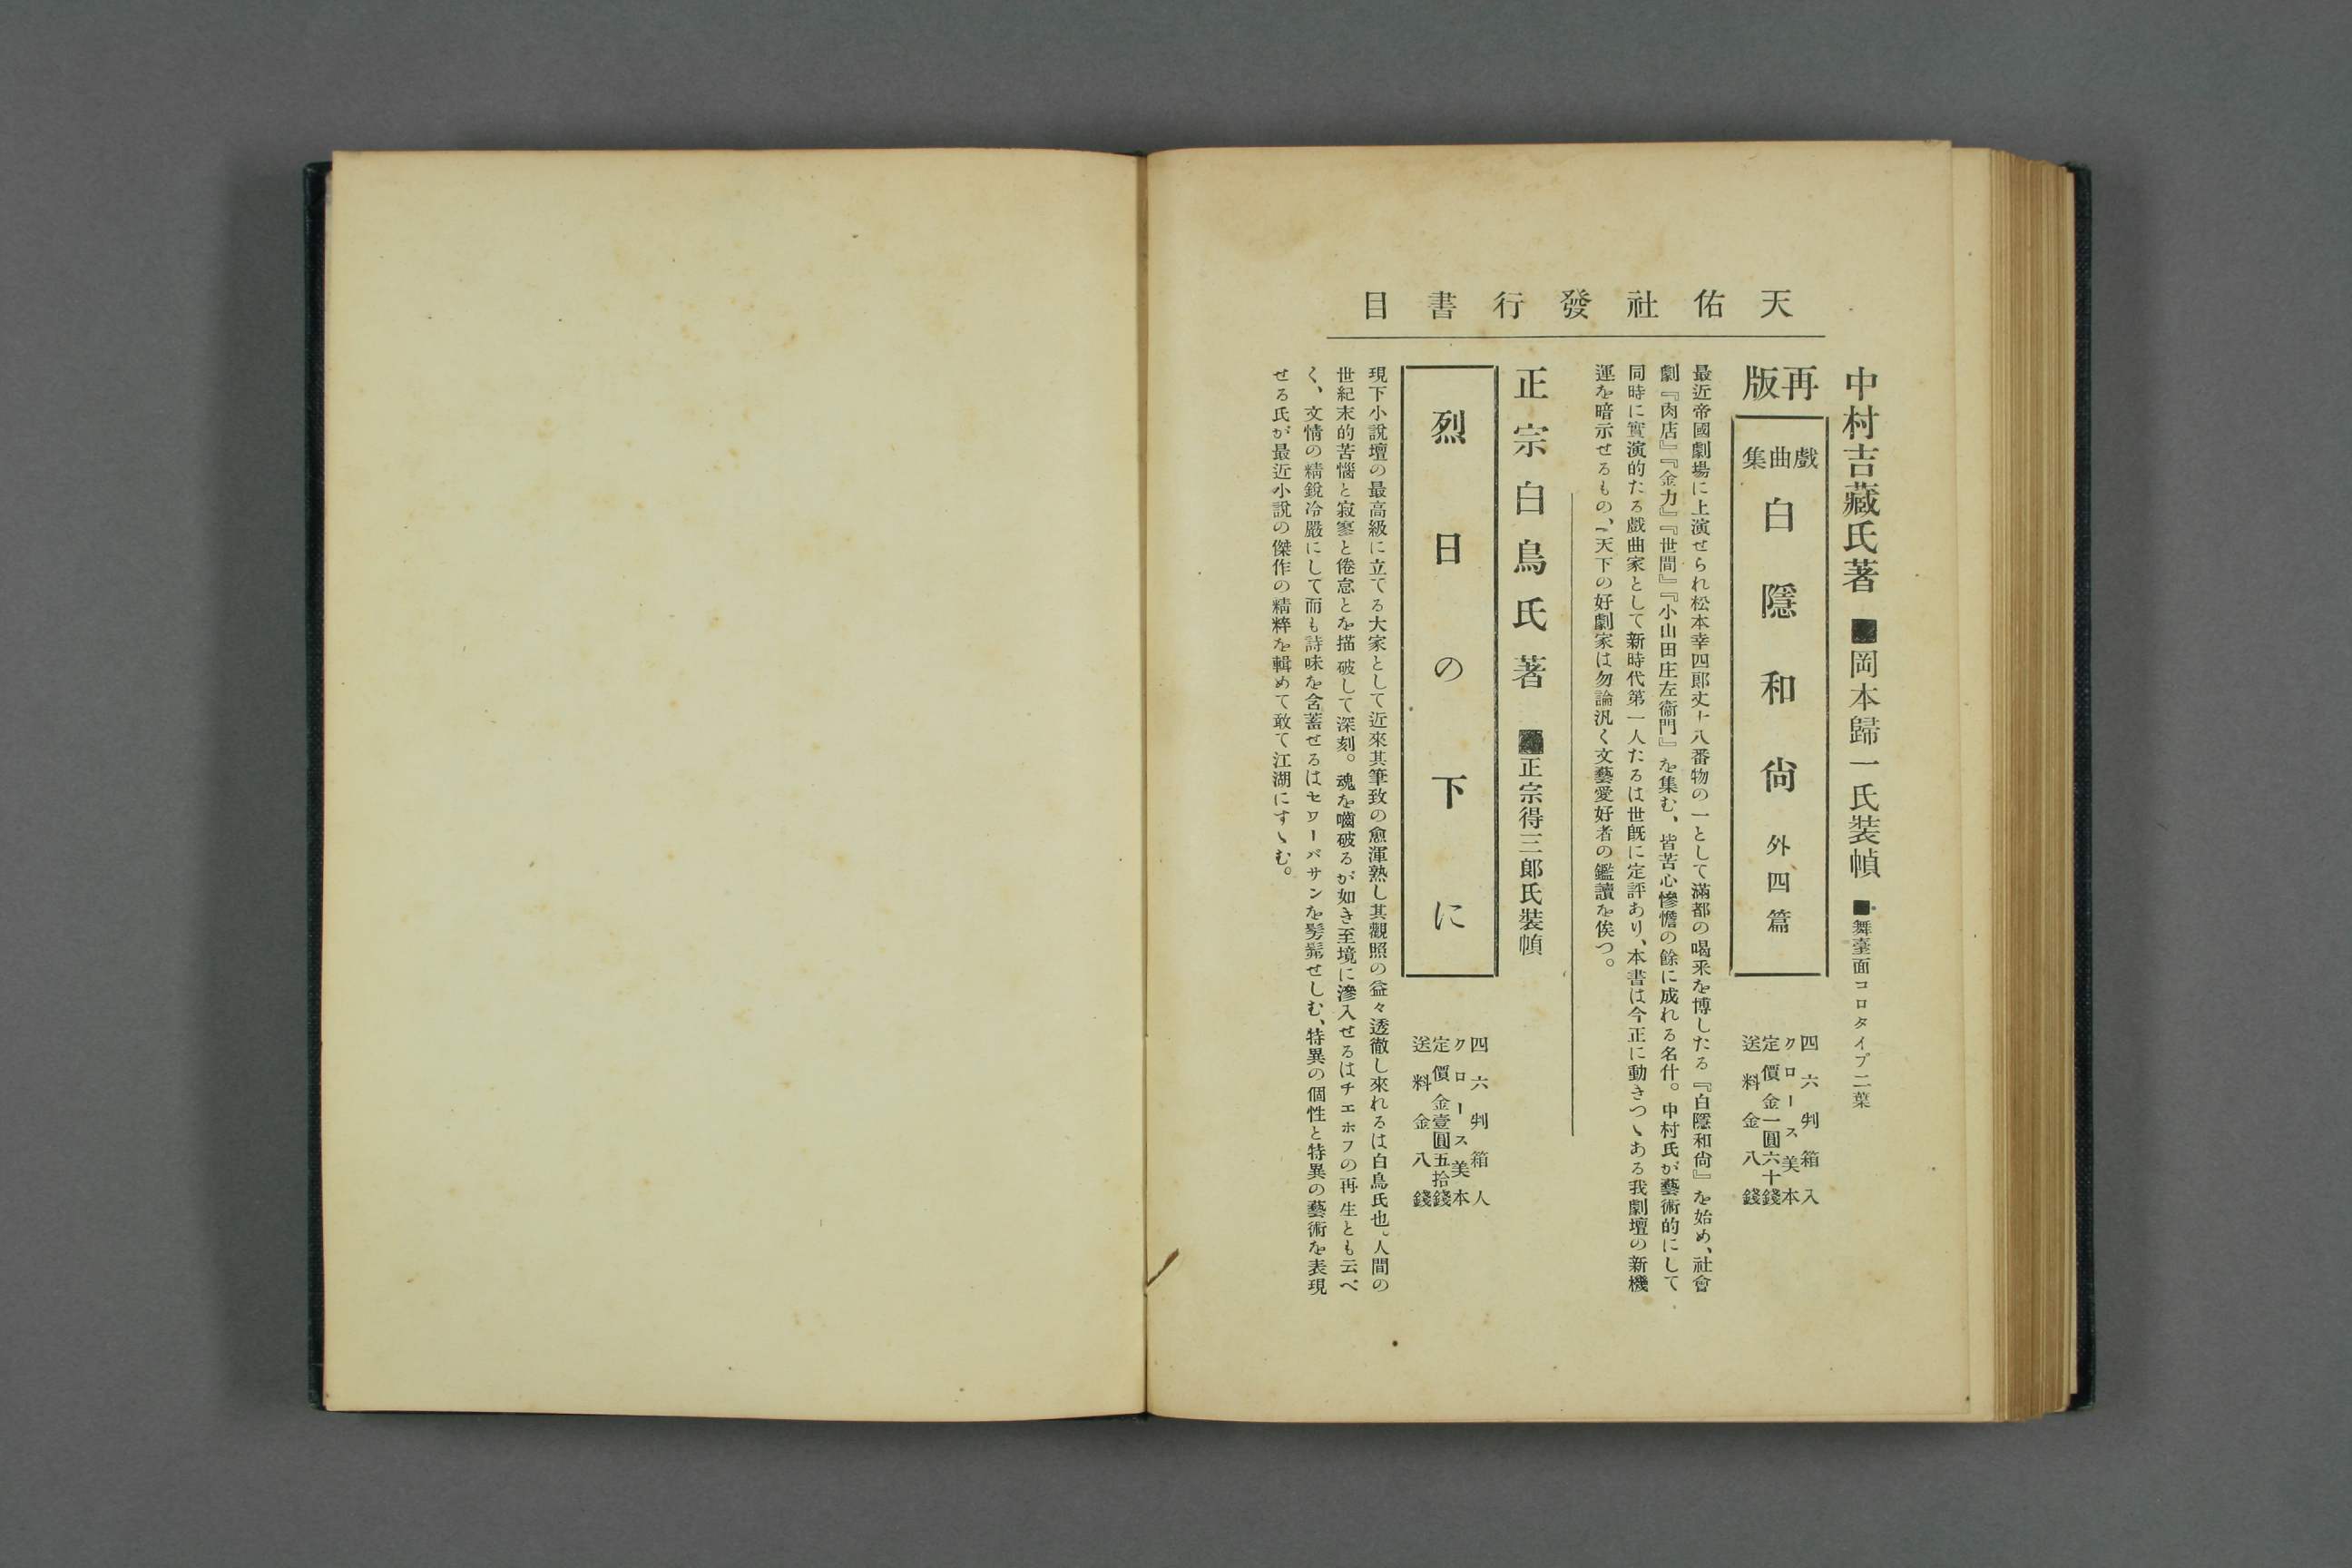 天佑社發行書目
中村吉藏氏著 ■岡本歸一氏裝幀 ■舞臺面コロタイプ二葉
再版
戲曲集 白隱和尙 外四篇
四六判箱入
クロース美本
定價金一圓六十錢
送料金八錢
最近帝國劇場に上演せられ松本幸四郞丈十八番物の一として滿都の喝釆を博したる『白隱和尙』を始め、社會
劇『肉店』『金力』『世間』『小山田庄左衞門』を集む、皆苦心慘憺の餘に成れる名什。中村氏が藝術的にして
同時に實演的たる戲曲家として新時代第一人たるは世旣に定評あり、本書は今正に動きつゝある我劇壇の新機
運を暗示せるもの、天下の好劇家は勿論汎く文藝愛好者の鑑讀を俟つ。
正宗白鳥氏著 ■正宗得三郞氏裝幀
烈日の下に
四六判箱人
クロース美本
定價金壹圓五拾錢
送料金八錢
現下小說壇の最高級に立てる大家として近來其筆致の愈渾熟し其觀照の益々透徹し來れるは白鳥氏也。人間の
世紀末的苦惱と寂寥と倦怠とを描破して深刻。魂を嚙破るが如き至境に滲入せるはチエホフの再生とも云べ
く、文情の精銳冷嚴にして而も詩味を含蓄せるはモウーパサンを髣髴せしむ、特異の個性と特異の藝術を表現
せる氏が最近小說の傑作の精粹を輯めて敢て江湖にすゝむ。